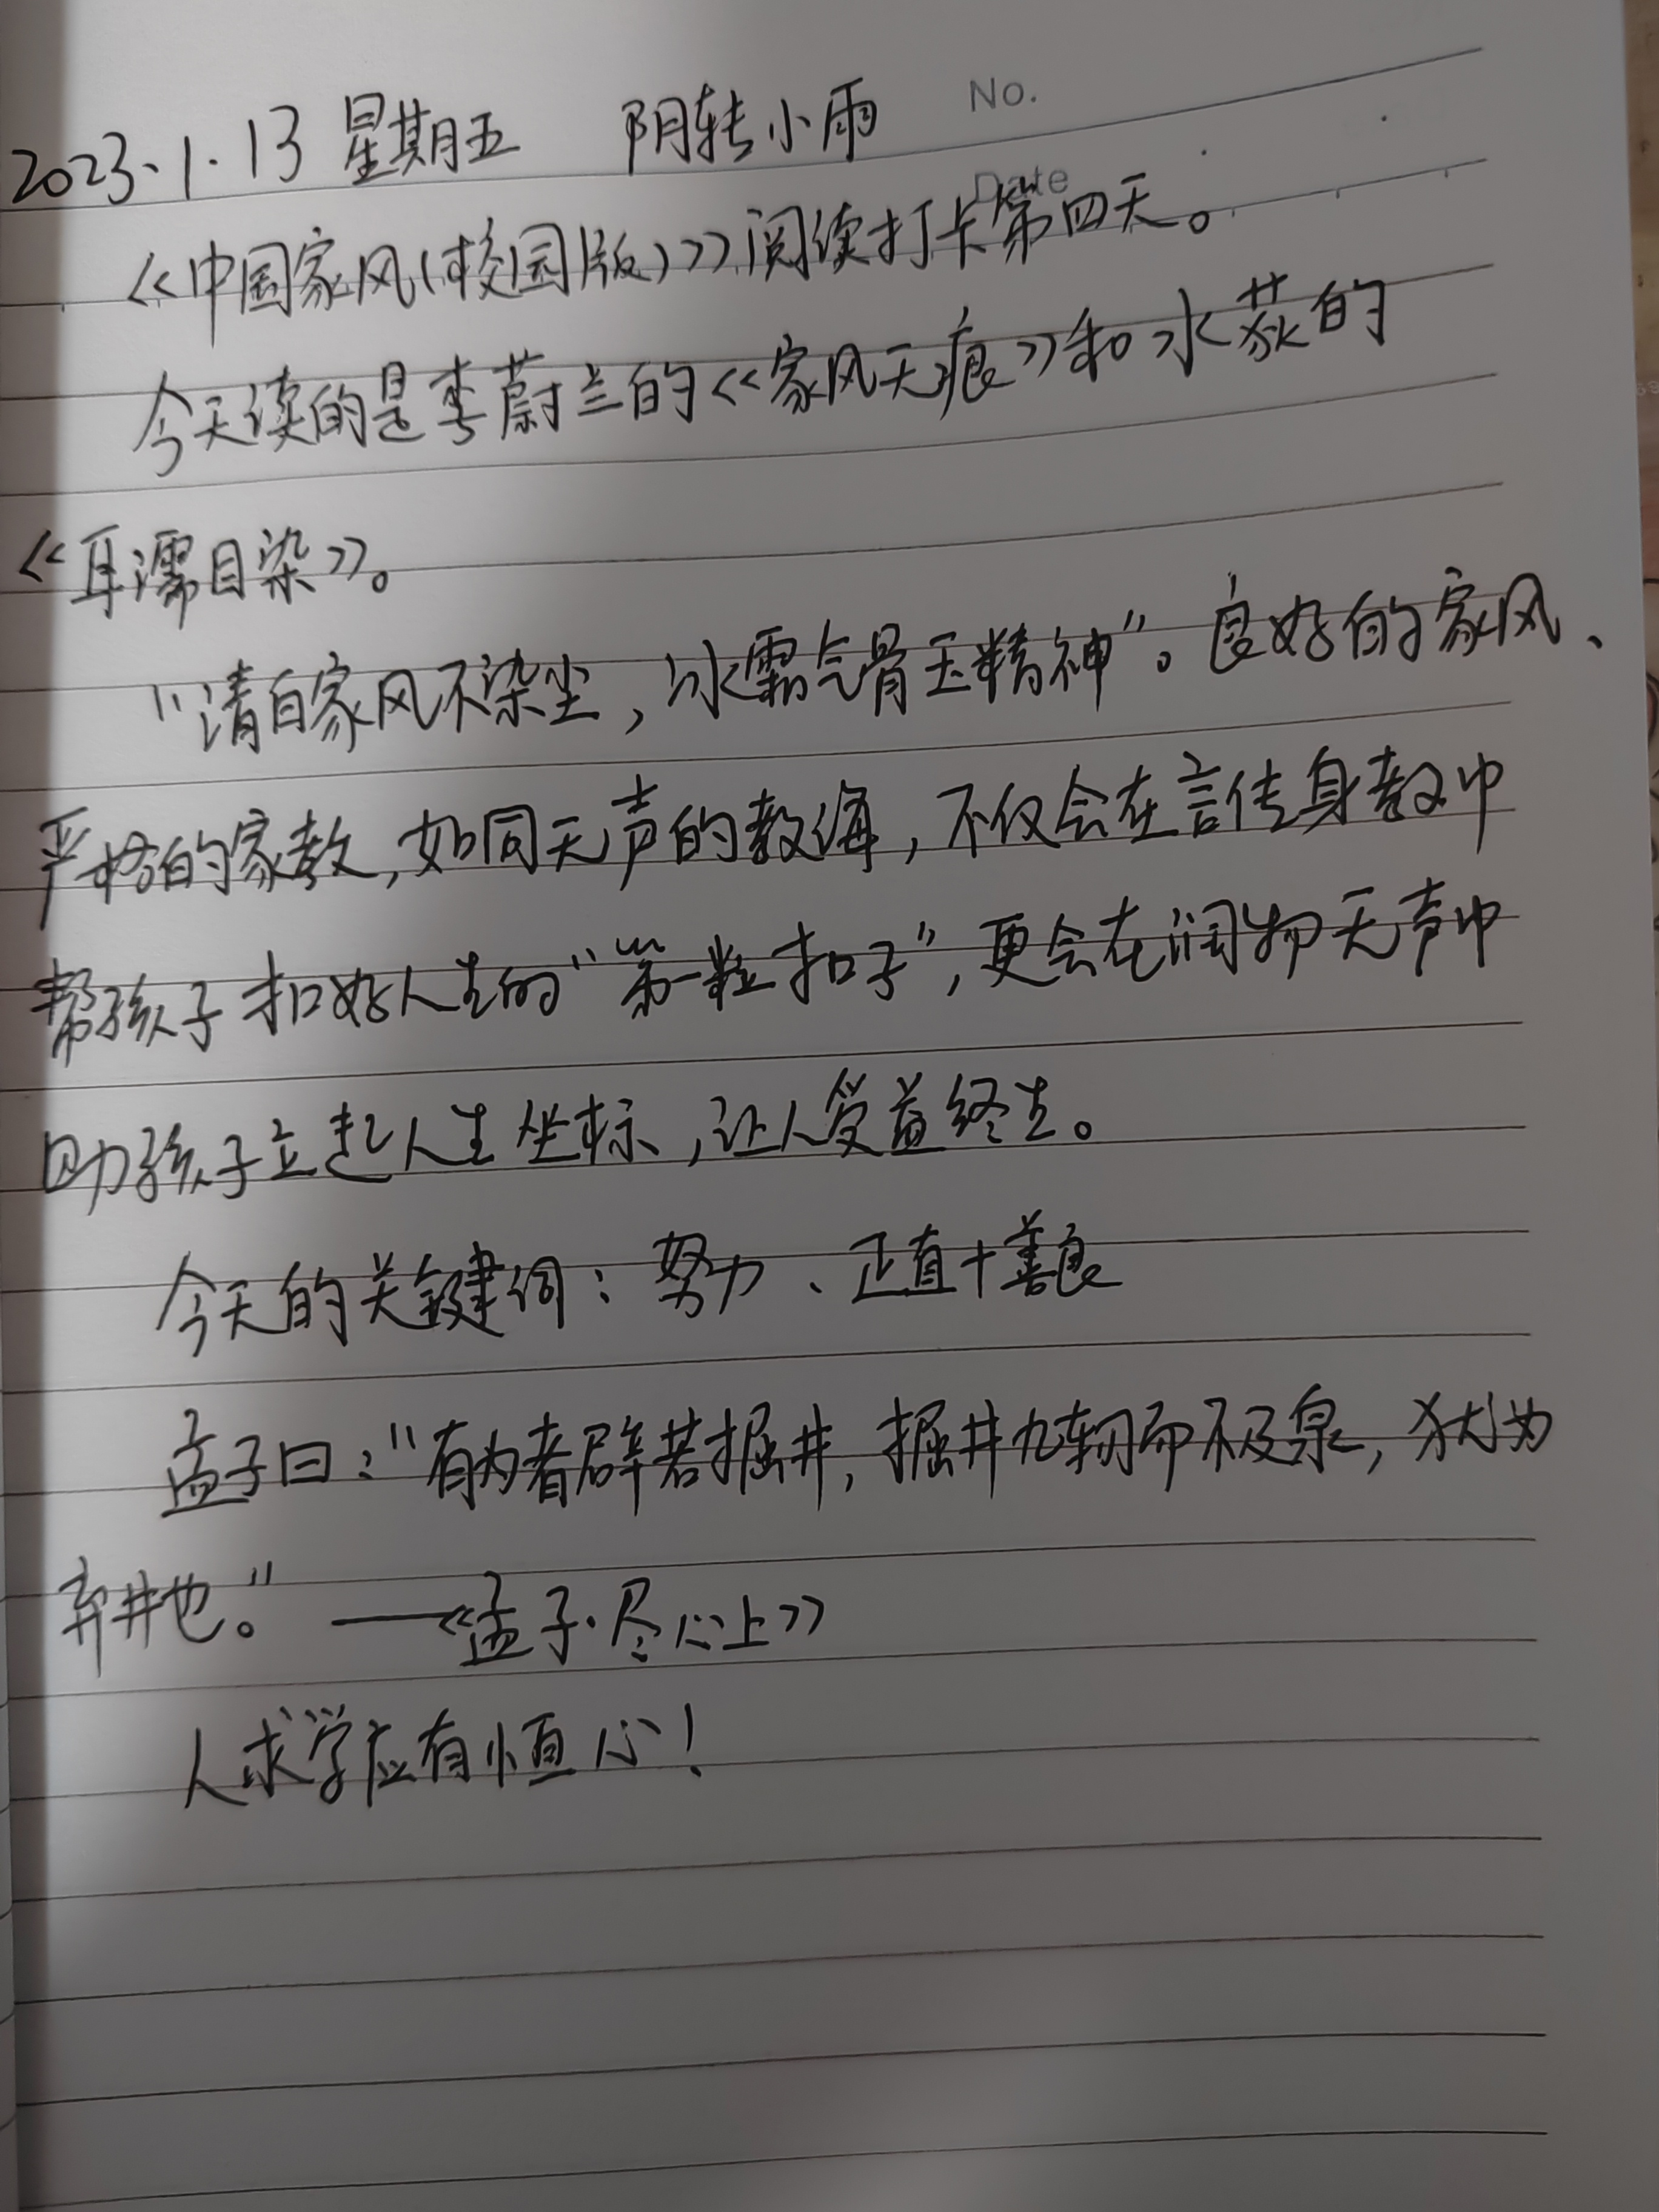 No.
2023.1.13 星期五 阴转小雨
Date
《中国家风(校园版)》阅读打卡第四天。
今天读的是李蔚兰的《家风无痕》和水荻的
《耳濡目染》。
"清白家风不染尘，冰霜气骨玉精神"。良好的家风、
严格的家教，如同无声的教诲，不仅会在言传身教中
帮孩子扣好人生的"第一粒扣子"，更会在润物无声中
助孩子立起人生坐标，让人受益终生。
今天的关键词：努力、正直+善良
孟子曰："有为者辟若掘井，掘井九轫而不及泉，犹为
弃井也。" ——《孟子·尽心上》
人求学应有恒心！